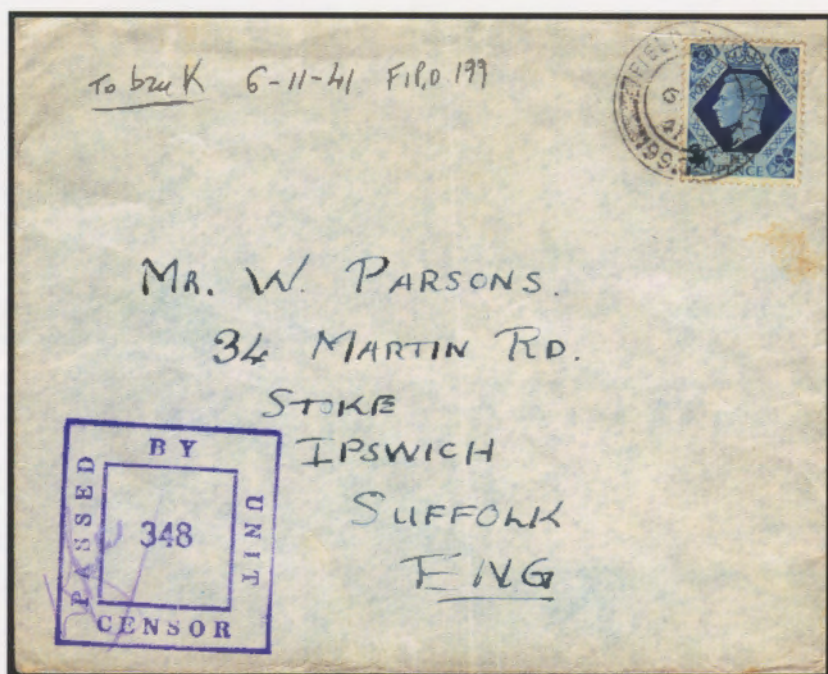 To bruk 6-11-41 F.P.O 199
FIELD
6
41
199
POSTAGE REVENUE
TEN PENCE
MR. W. PARSONS.
34 MARTIN RD.
STOKE
IPSWICH
SUFFOLK
ENG
PASSED BY UNIT CENSOR
348